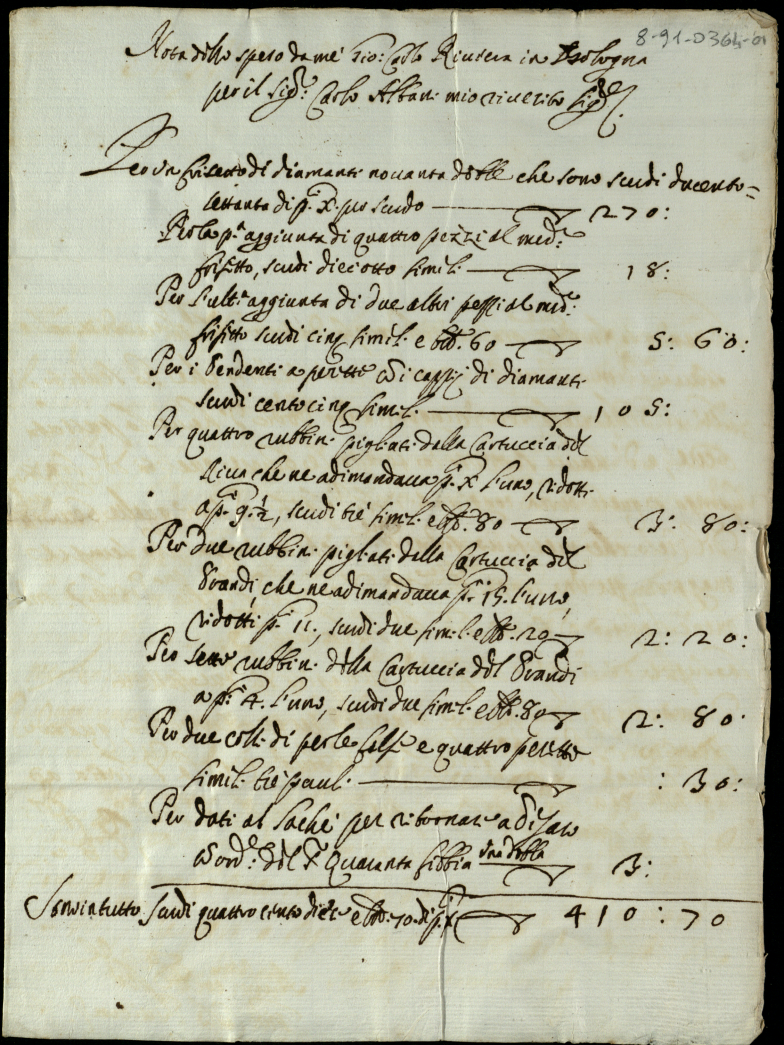 8-91-D364-01
Nota dello speso da me Gio: Carlo Riviera in Bologna
per il Sig.re Carlo Albani mio riverito Sig.re
Per un frisetto di diamanti novanta doble che sono scudi ducento=
settanta di p. X. per scudo 270:
Per la p.a aggiunta di quattro pezzi al med.o
frisetto, scudi dieciotto simili 18:
Per l'ult.a aggiunta di due altri pezzi al med.o
frisetto scudi cinq simil. e bb. 60 5: 60:
Per i Pendenti a perette con i cappij di diamanti
scudi cento cinq simil. 105:
Per quattro rubbin. pigliati dalla Cartuccia del
Riva che ne adimandava p. X l'uno, ridotti
a p. 9 ½, scudi trè simil. e bb. 80 3: 80:
Per due rubbin. pigliati dalla Cartuccia del
Brandi, che ne adimandava p. 15. l'uno,
ridotti p. 11., scudi due simil. e bb. 20 2: 20:
Per sette rubbin. della Cartuccia del Brandi
a p. 4. l'uno, scudi due simil. e bb. 80 2: 80
Per due coll. di perle false e quattro perette
simil. trè paul. : 30:
Per dati al per ritornare a
ord.e del Quaranta Fibbia una dobla 3:
Sono in tutto Scudi quattro cento dieci e bb. 70. di p. X 410: 70